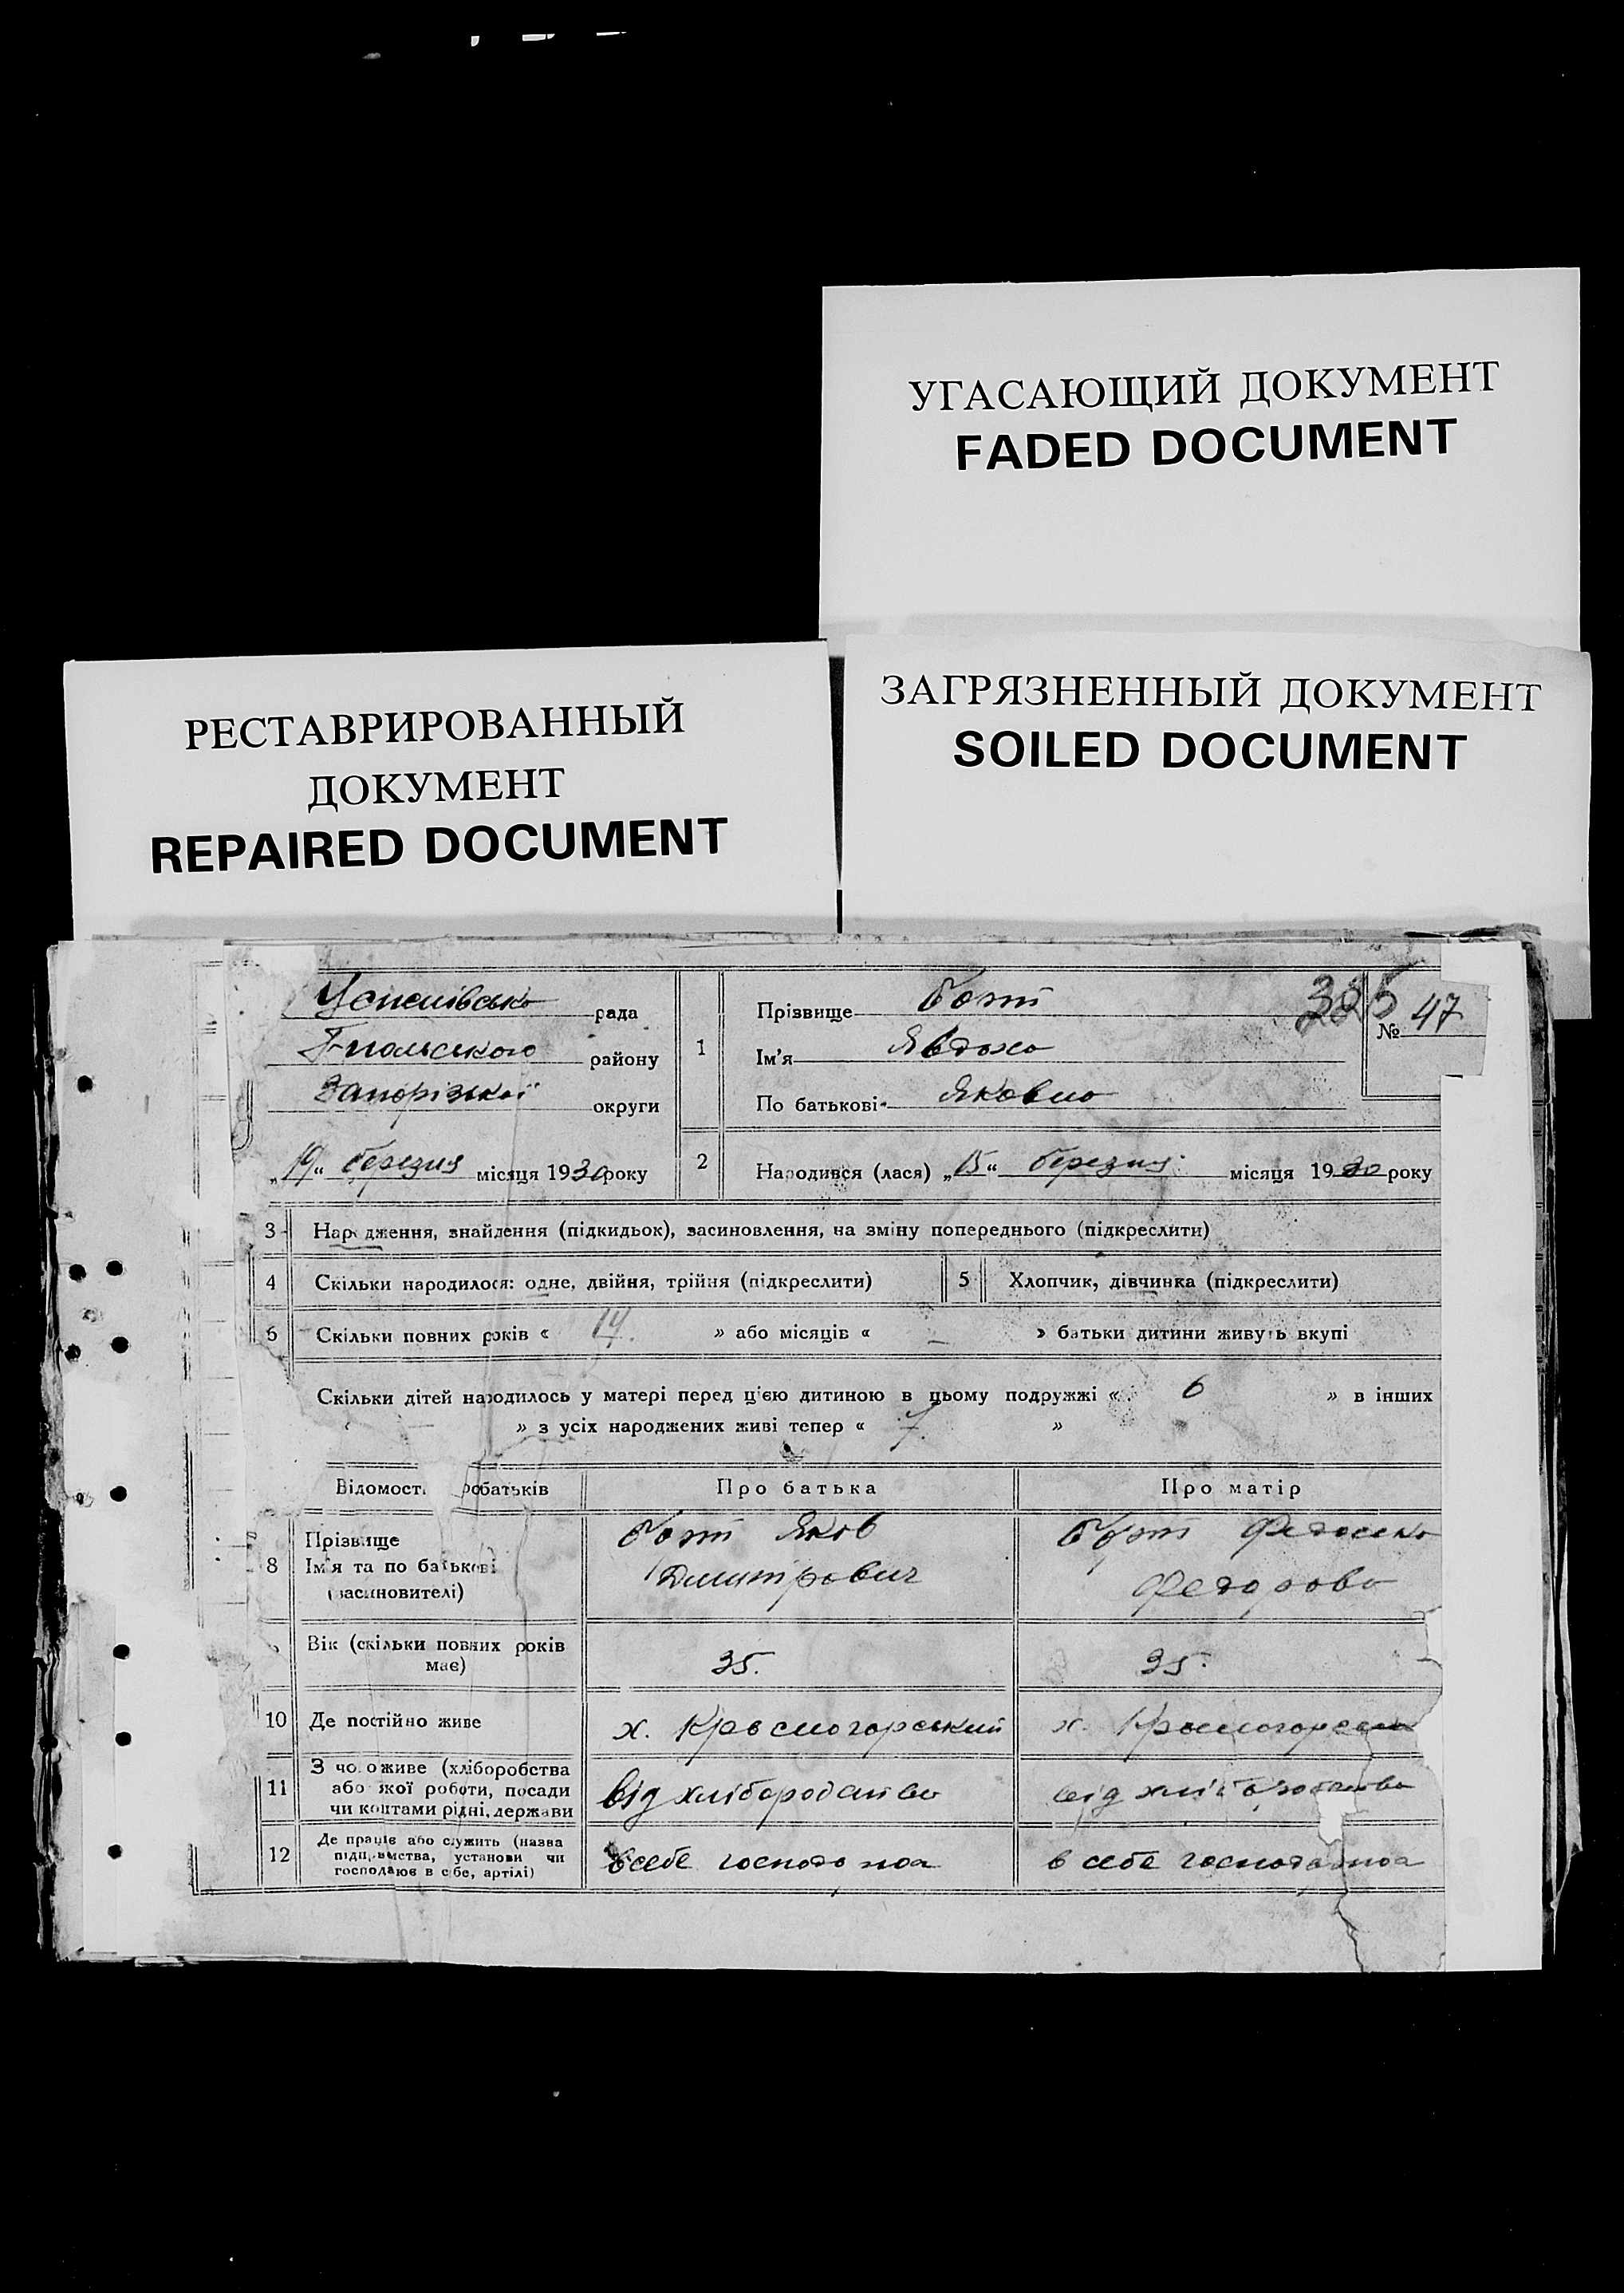 УГАСАЮЩИЙ ДОКУМЕНТ
FADED DOCUMENT
РЕСТАВРИРОВАННЫЙ
ДОКУМЕНТ
REPAIRED DOCUMENT
ЗАГРЯЗНЕННЫЙ ДОКУМЕНТ
SOILED DOCUMENT
Успенівська рада
району
Запорізької округи
„19“ березня місяця 1930 року
1
Прізвище
Ім'я Явдоха
По батькові Яковна
325
№ 47
2
Народився (лася) „15“ березня місяця 1930 року
3 Народження, знайдення (підкидьок), засиновлення, на зміну попереднього (підкреслити)
4 Скільки народилося: одне, двійня, трійня (підкреслити)
5 Хлопчик, дівчинка (підкреслити)
6 Скільки повних років « 14. » або місяців « — » батьки дитини живуть вкупі
Скільки дітей народилось у матері перед цією дитиною в цьому подружжі « 6 » в інших
« — » з усіх народжених живі тепер « 7. »
Відомості про батьків
Про батька
Про матір
8
Прізвище
Ім'я та по батькові
(засиновителі)
Яков
Дмитрович
Федосія
Федорова
Вік (скільки повних років
має)
35.
35.
10 Де постійно живе
х. Красногорський
х.
11
З чого живе (хліборобства
або якої роботи, посади
чи коштами рідні, держави
від хліборобства
від хліборобства
12
Де працює або служить (назва
підприємства, установи чи
господарює в себе, артілі)
в себе господарка
в себе господарка